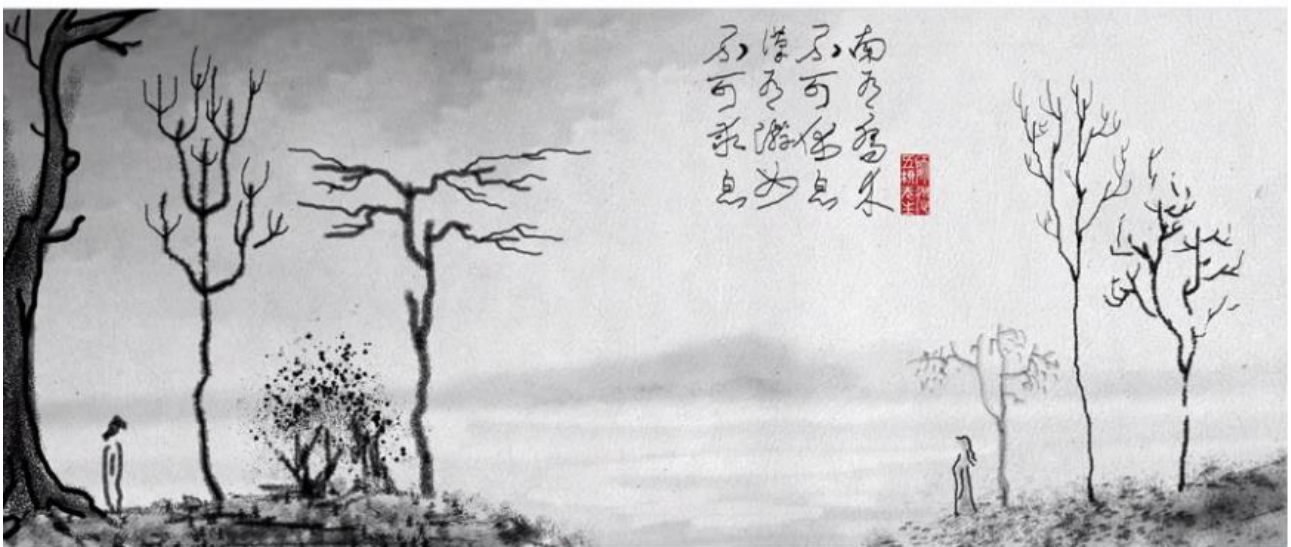 南有喬木
不可休息
漢有游女
不可求思